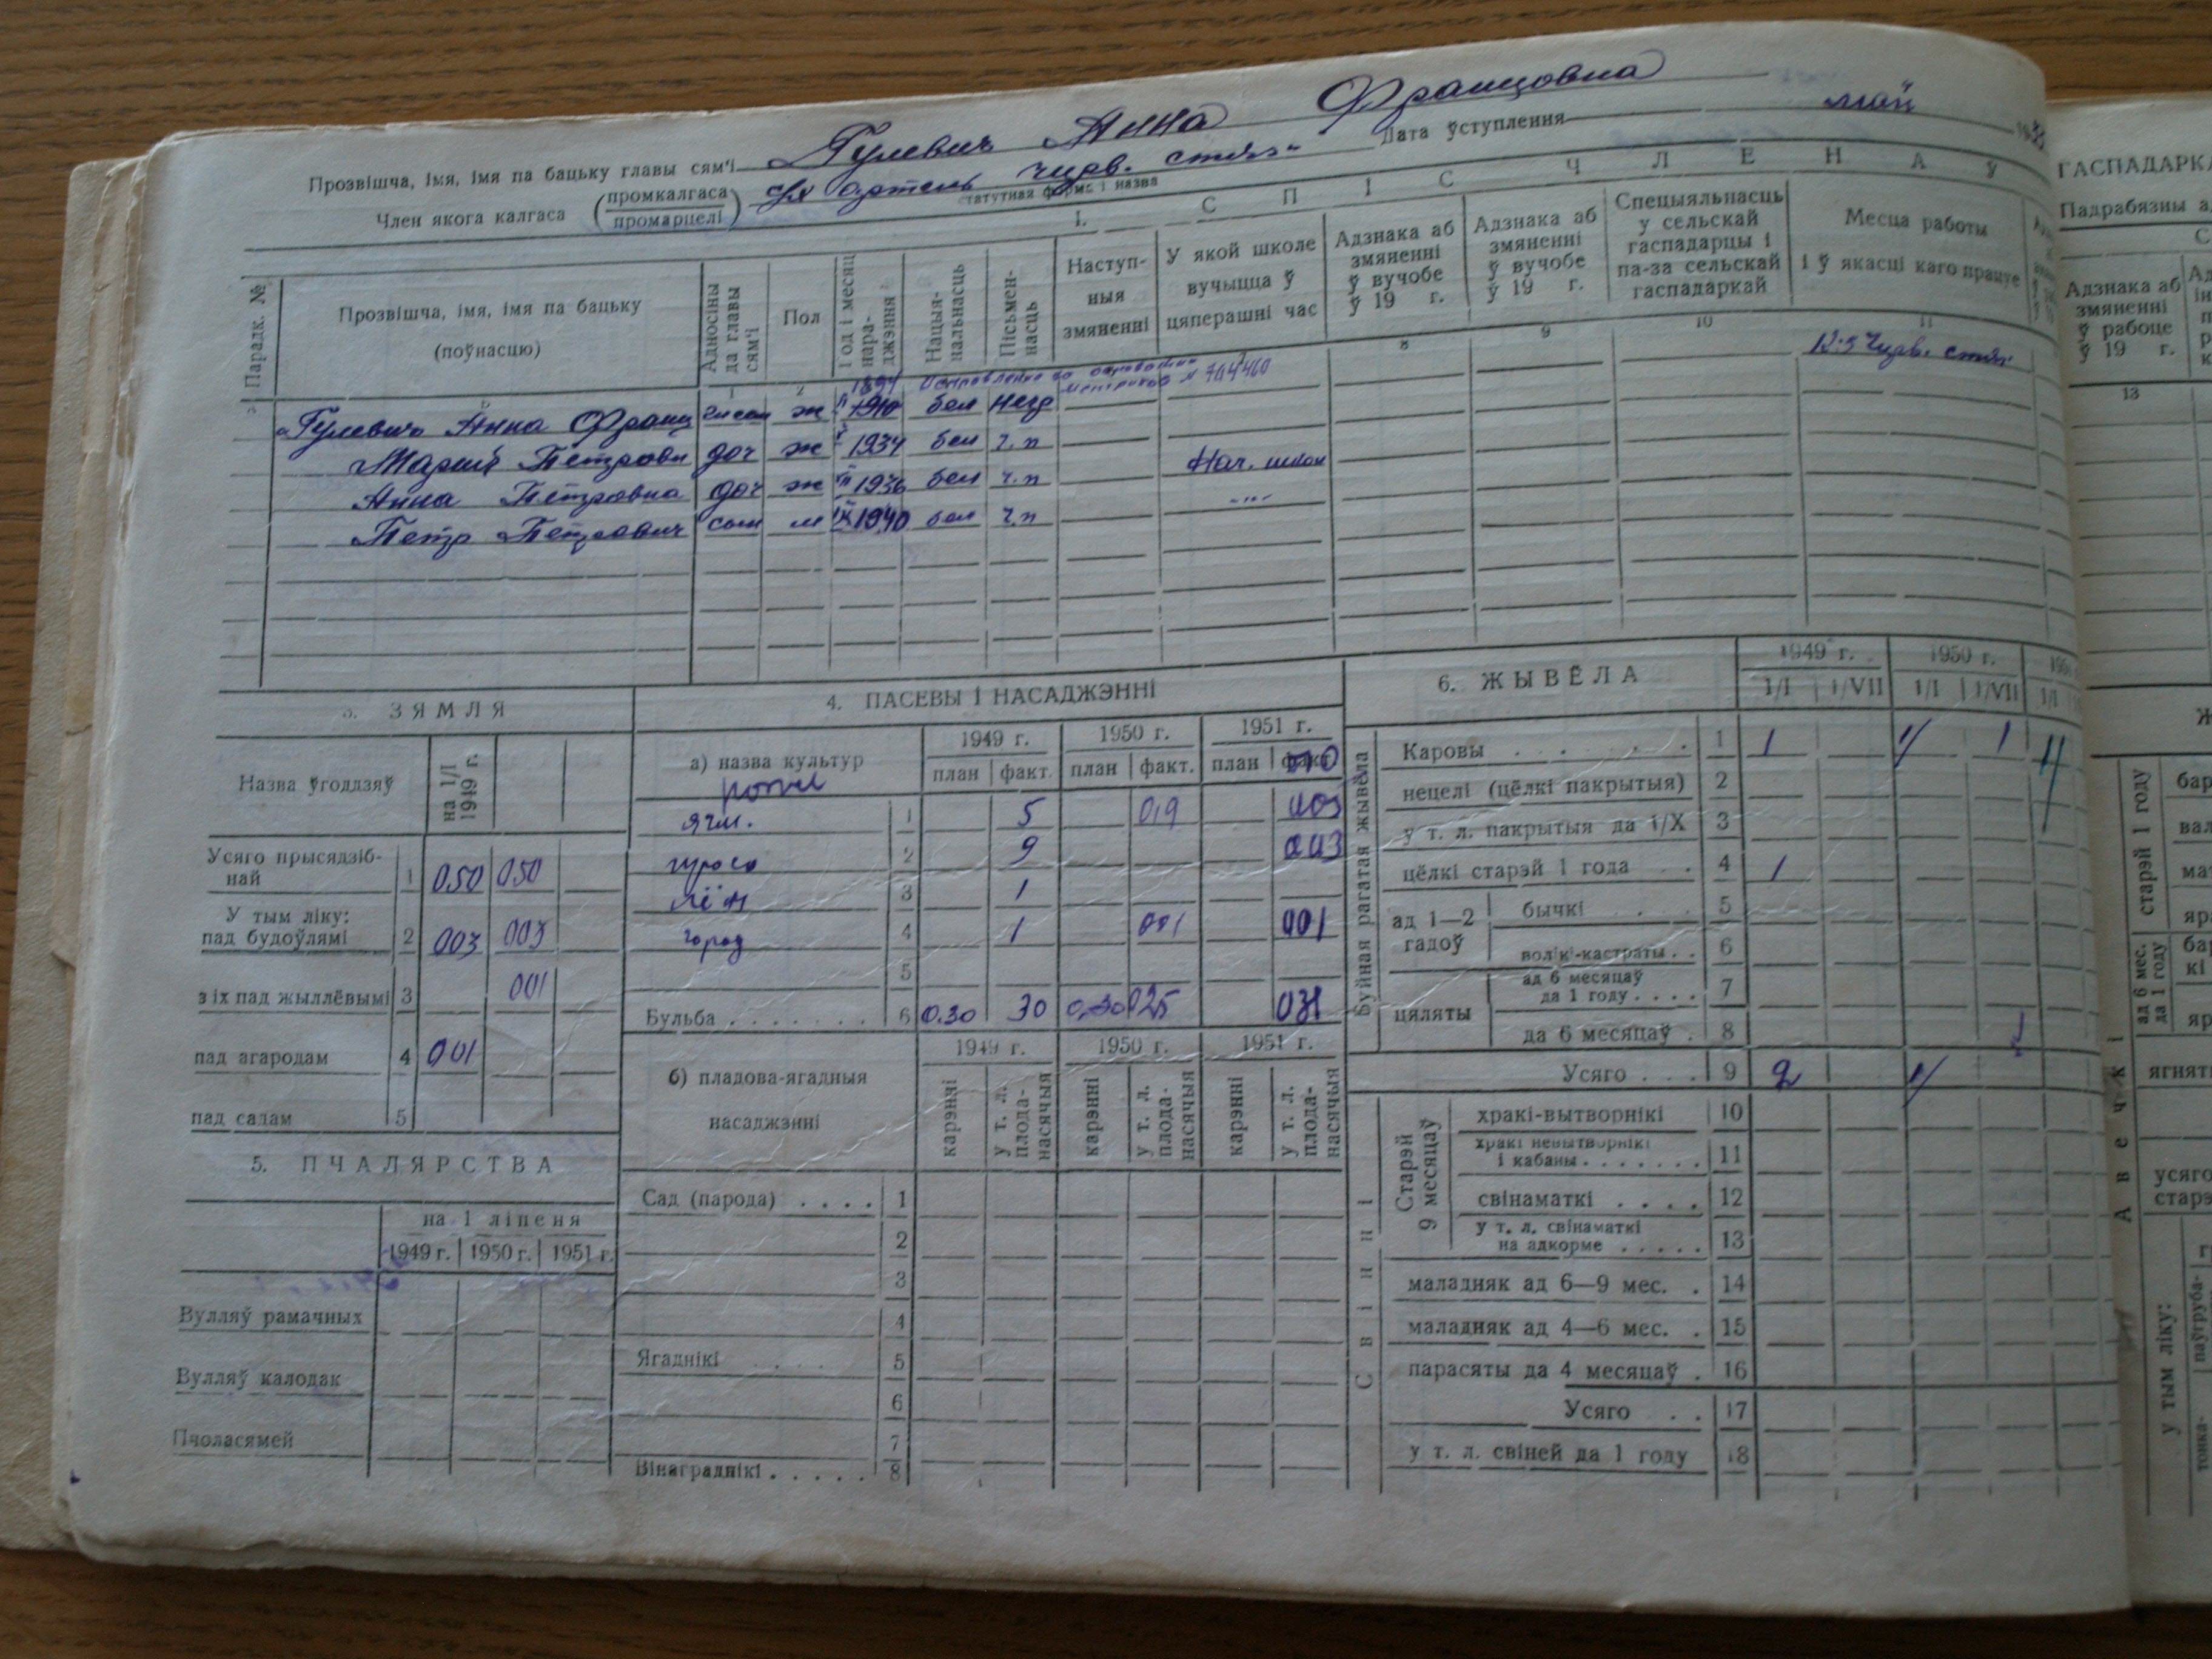 Прозвішча, імя, імя па бацьку главы сям'і Гулевич Анна Францовна
Член якога калгаса (промкалгаса промарцелі) с/х артель Чырв. сцяг
статутная форма і назва
Дата ўступлення май
1. СПІС ЧЛЕНАЎ
Парадк. №
Прозвішча, імя, імя па бацьку (поўнасцю)
Адносіны да главы сям'і
Пол
Год і месяц нараджэння
Нацыянальнасць
Пісьменнасць
Наступныя змяненні
У якой школе вучыцца ў цяперашні час
Адзнака аб змяненні ў вучобе ў 19 г.
Адзнака аб змяненні ў вучобе ў 19 г.
Спецыяльнасць у сельскай гаспадарцы і па-за сельскай гаспадаркай
Месца работы і ў якасці каго працуе
1 2 8 9 10 11
1894 Исправлено на основании метрики № 704460
Гулевич Анна Франц ж 1910 бел негр
Мария Петровн доч ж 1934 бел ч.п
Анна Петровна доч ж 1936 бел ч.п Нач. школ
Петр Петрович сын м 1940 бел ч.п -"-
3. ЗЯМЛЯ
Назва ўгоддзяў на 1/I 1949 г.
Усяго прысядзібнай 1 0.50 0.50
У тым ліку: пад будоўлямі 2 003 003
з іх пад жыллёвымі 3 001
пад агародам 4 001
пад садам 5
5. ПЧАЛЯРСТВА
на 1 ліпеня
1949 г. 1950 г. 1951 г.
Вулляў рамачных
Вулляў калодак
Пчоласямей
4. ПАСЕВЫ І НАСАДЖЭННІ
а) назва культур 1949 г. 1950 г. 1951 г.
план факт. план факт. план факт.
ячм. 1 5 0,9
2 9
лён 3 1
город 4 1 001 001
5
Бульба 6 0.30 30 0,30 025
б) пладова-ягадныя насаджэнні 1949 г. 1950 г. 1951 г.
карэнні у т. л. плоданасячыя карэнні у т. л. плоданасячыя карэнні у т. л. плоданасячыя
Сад (парода) 1
2
3
4
Ягаднікі 5
6
7
Вінаграднікі 8
6. ЖЫВЁЛА
1949 г. 1950 г.
1/I 1/VII 1/I 1/VII 1/I
Буйная рагатая жывёла
Каровы 1 1 1 1
нецелі (цёлкі пакрытыя) 2
у т. л. пакрытыя да 1/X 3
цёлкі старэй 1 года 4 1
ад 1—2 гадоў бычкі 5
волікі-кастраты 6
цяляты ад 6 месяцаў да 1 году 7
да 6 месяцаў 8
Усяго 9 2 1
Свінні
Старэй 9 месяцаў
хракі-вытворнікі 10
хракі невытворнікі і кабаны 11
свінаматкі 12
у т. л. свінаматкі на адкорме 13
маладняк ад 6—9 мес. 14
маладняк ад 4—6 мес. 15
парасяты да 4 месяцаў 16
Усяго 17
у т. л. свіней да 1 году 18
Адзнака аб змяненні ў рабоце ў 19 г.
13
Авечкі
старэй 1 году
ад 6 мес. да 1 году
у тым ліку: